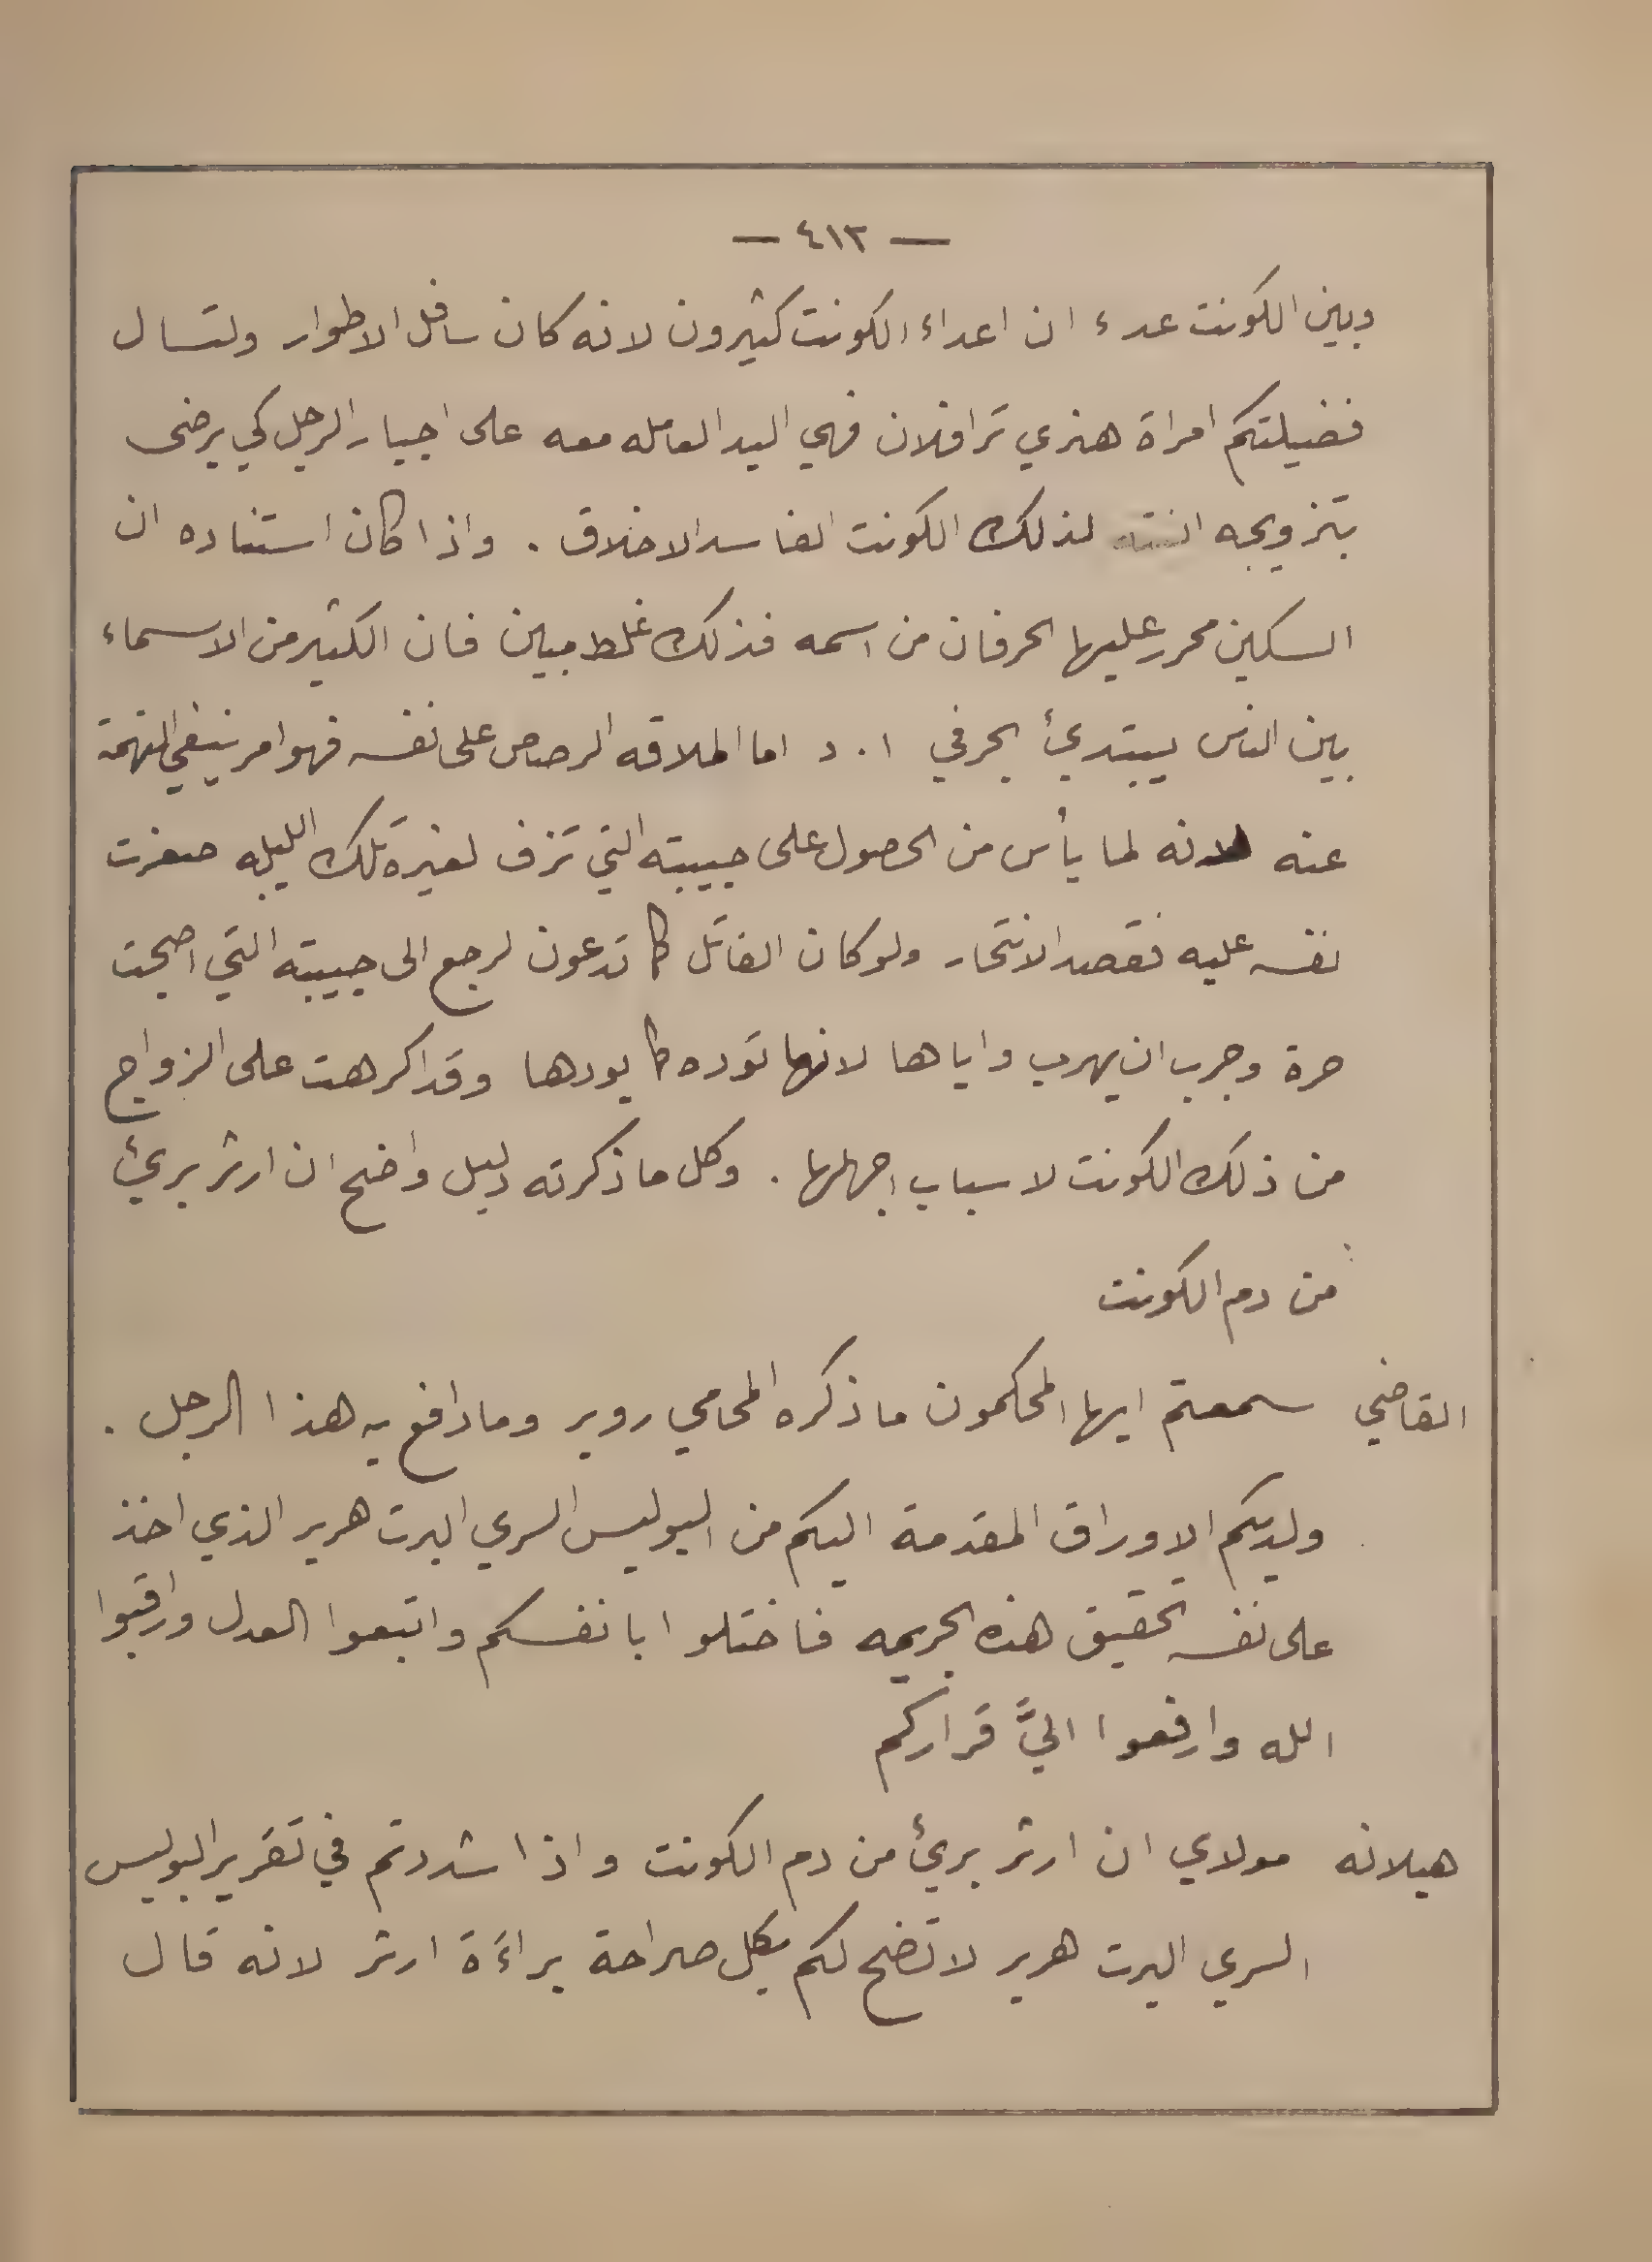 — ٤١٣ —
وبين الكونت عدء ان اعداء الكونت كثيرون لانه كان سافل الاطوار ولتسال
فضيلتكم امراة هنري ترافلان فهي اليد العامله معه على اجبار الرجل كي يرضى
بتزويجه ابنته لذلك الكونت الفاسد الاخلاق . واذا كان استناده ان
السكين محرر عليها الحرفان من اسمه فذلك غلط مبين فان الكثير من الاسماء
بين الناس يبتدئ بحرفي ا . د اما اطلاقه الرصاص على نفسه فهو امر ينفي التهمة
عنه لانه لما يأس من الحصول على حبيبته التي تزف لغيره تلك الليله صغرت
نفسه عليه فقصد الانتحار ولو كان القاتل كما تدعون لرجع الى حبيبته التي اصبحت
حرة وجرب ان يهرب واياها لانها توده كما يودها وقد اكرهت على الزواج
من ذلك الكونت لاسباب اجهلها . وكل ما ذكرته دليل واضح ان ارثر بريئ
من دم الكونت
القاضي سمعتم ايها المحكمون ما ذكره المحامي روبر وما دافع به هذا الرجل .
ولديكم الاوراق المقدمة اليكم من البوليس السري البرت هرير الذي اخذ
على نفسه تحقيق هذه الجريمه فاختلوا بانفسكم واتبعوا العدل وراقبوا
الله وارفعوا اليَّ قراركم
هيلانه مولاي ان ارثر بريئ من دم الكونت واذا شددتم في تقرير البوليس
السري البرت هرير لاتضح لكم بكل صراحة براءة ارثر لانه قال